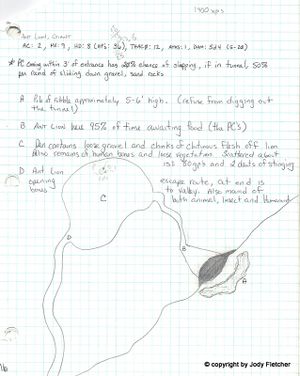 1300 xps
Ant Lion, Giant
AC: 2, MV: 9, HD: 8 (HPs: 36), THAC0: 12, #AT: 1, DAM: 5d4 (5-20)
* PC coming within 3' of entrance has 20% chance of slipping, if in tunnel, 50%
per round of sliding down gravel, sand rocks
A Pile of rubble approximately 5-6' high. (refuse from digging out
the tunnel)
B Ant Lion here 95% of time awaiting food (the PC's)
C Den contains loose gravel and chunks of chitinous flesh off lion
Also remains of human bones and loose vegetation. Scattered about
is: 80gp's and 2 of stinging
D Ant Lion
opening
bones
escape route, at end is
to valley. Also mound of
both animal, insect and humanoid
C
D
B
A
16
© copyright by Jody Fletcher